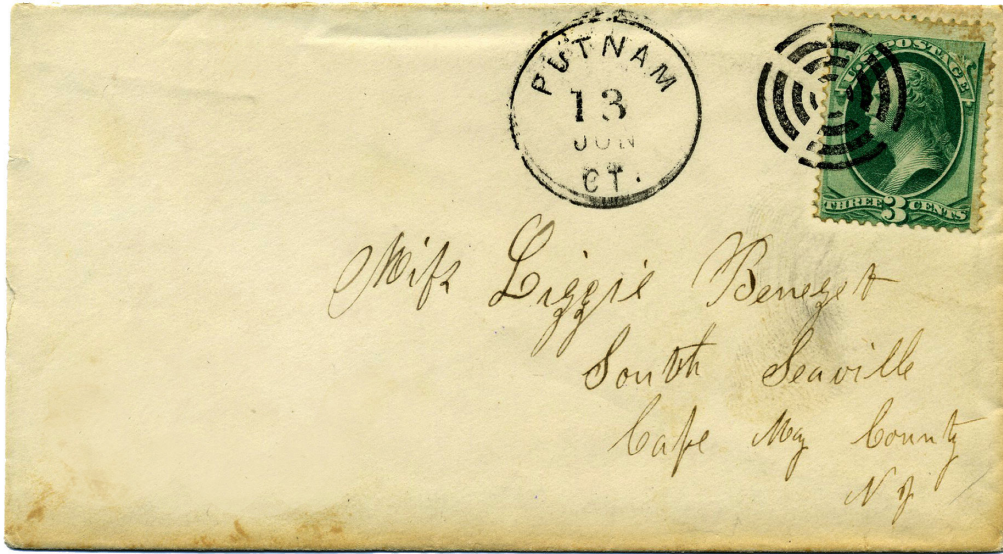 PUTNAM
13
JUN
CT.
U.S. POSTAGE
THREE 3 CENTS
Miss Lizzie Benezet
South Seaville
Cape May County
N J